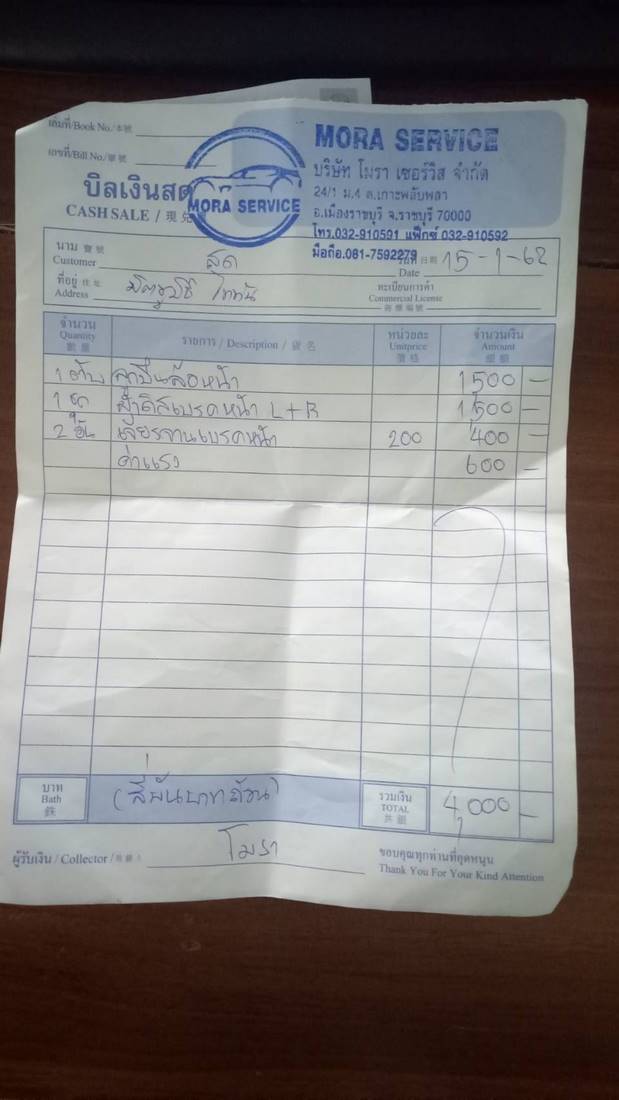 เล่มที่/Book No./本號
เลขที่/Bill No./單號
บิลเงินสด
CASH SALE / 現兌單
MORA SERVICE
MORA SERVICE
บริษัท โมรา เซอร์วิส จำกัด
24/1 ม.4 ต.เกาะพลับพลา
อ.เมืองราชบุรี จ.ราชบุรี 70000
โทร.032-910591 แฟ็กซ์ 032-910592
มือถือ.081-7592279
นาม 寶號
Customer สด
วันที่ 日期
Date 15-1-62
ที่อยู่ 住址
Address มิตซูบิชิ ไททัน
ทะเบียนการค้า
Commercial License
商標編號
จำนวน
Quantity
數量
รายการ / Description / 貨名
หน่วยละ
Unitprice
價格
จำนวนเงิน
Amount
總額
1 ตับ ลูกปืนล้อหน้า 1500 –
1 ชุด ผ้าดิสเบรคหน้า L+R 1,500 –
2 อัน เจียรจานเบรคหน้า 200 400 –
ค่าแรง 600 –
บาท
Bath
銖
(สี่พันบาทถ้วน)
รวมเงิน
TOTAL
共銀
4,000 –
ผู้รับเงิน / Collector / โมรา
ขอบคุณทุกท่านที่อุดหนุน
Thank You For Your Kind Attention